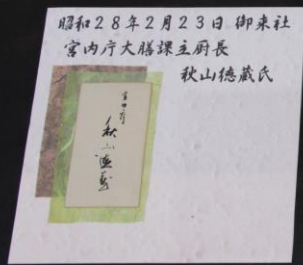 昭和28年2月23日 御来社
宮内庁大膳課主厨長
秋山徳蔵氏
宮内府
秋山徳蔵